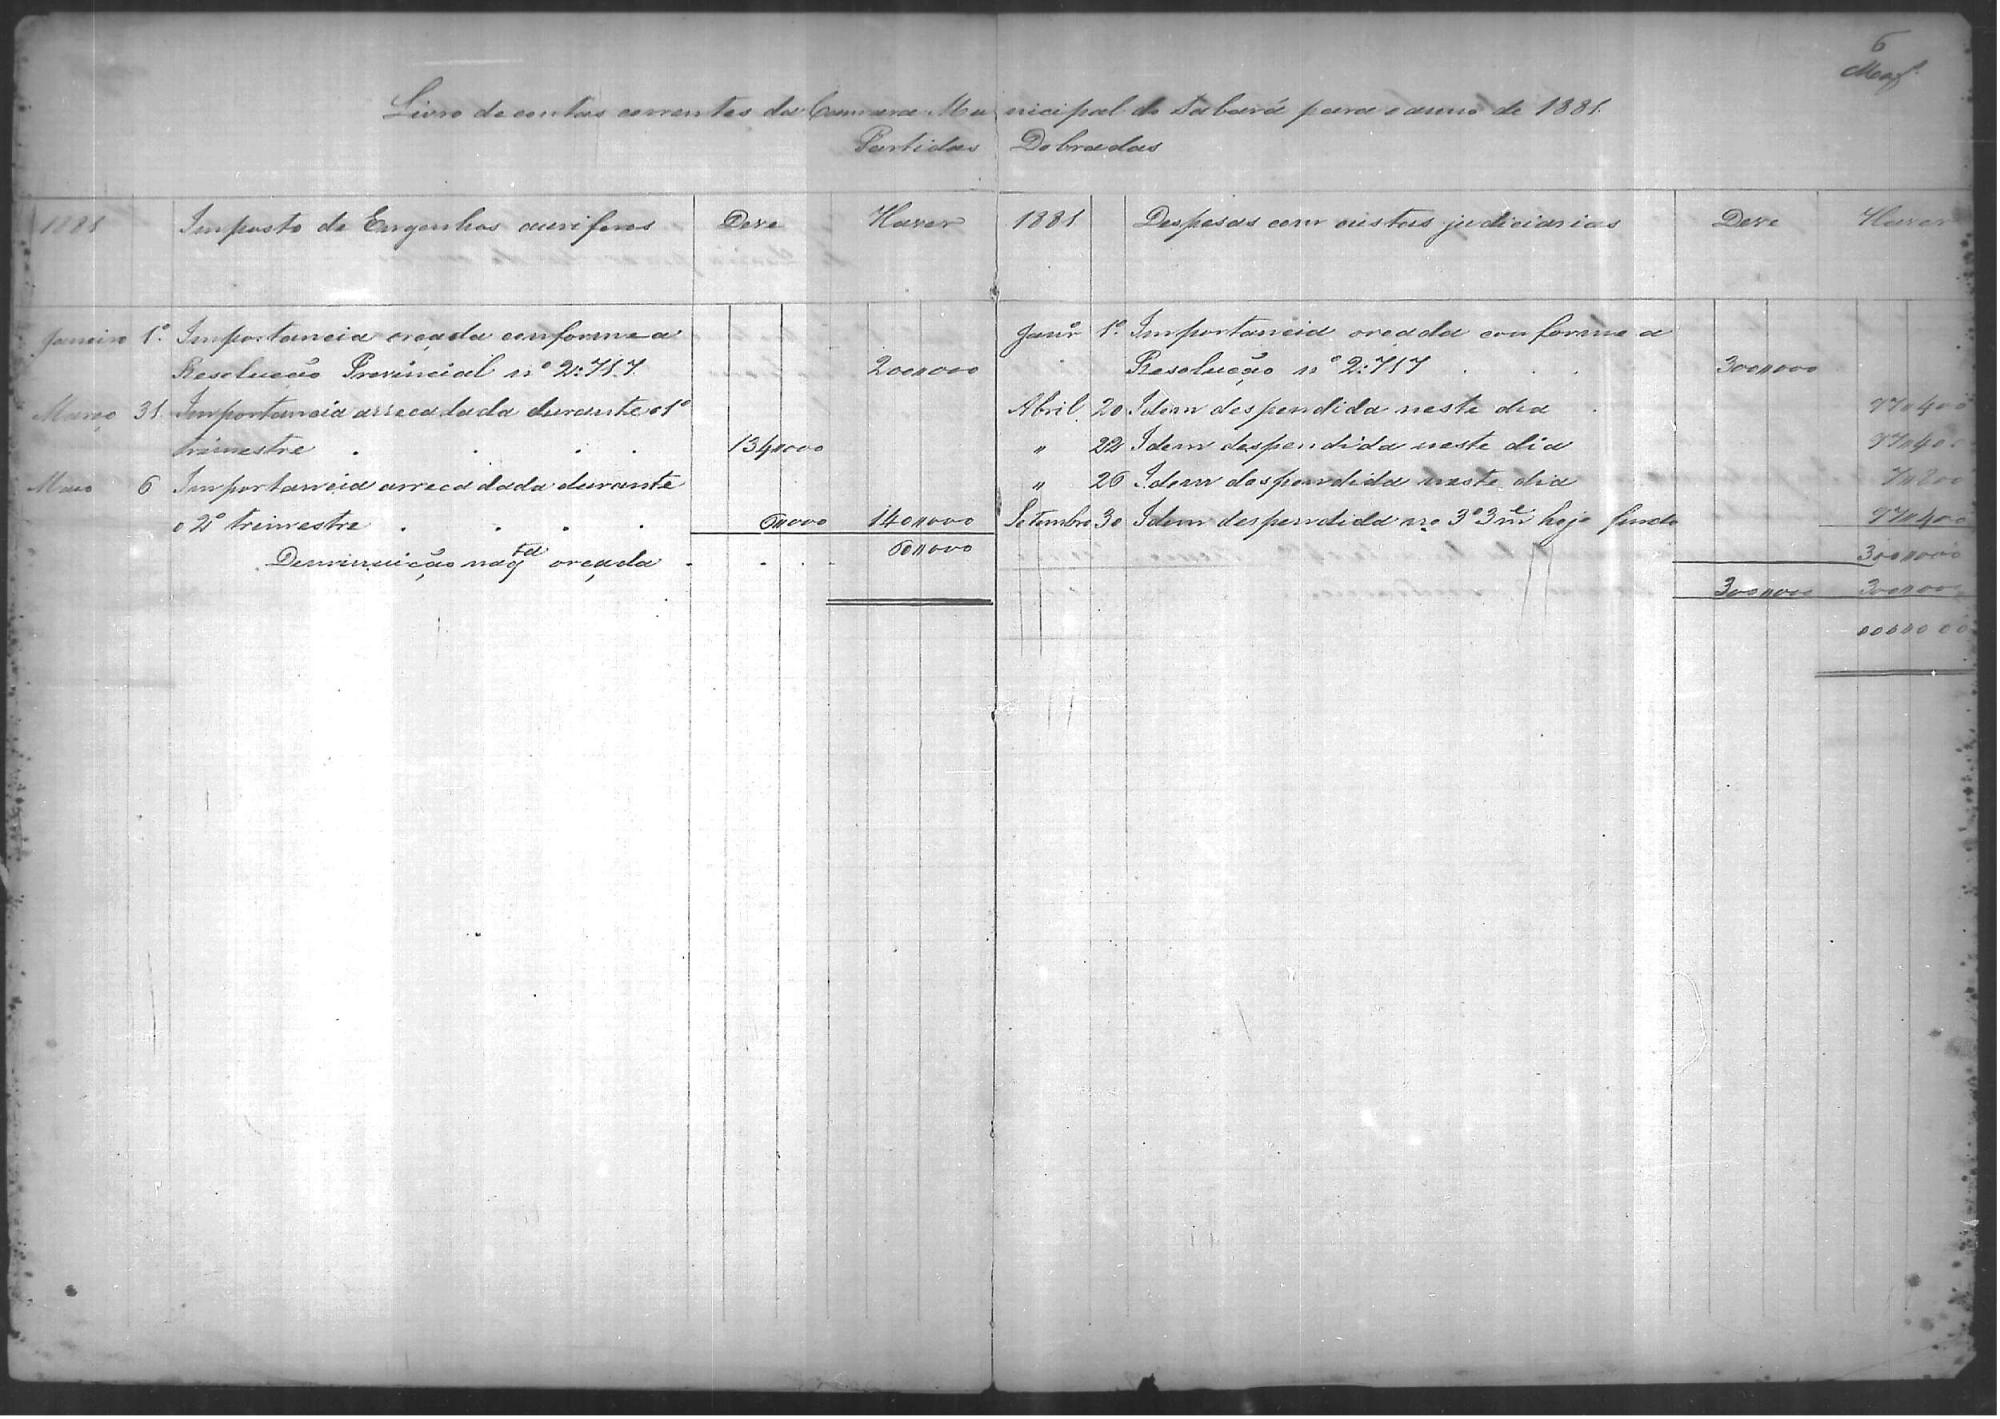 6
Livro de contas correntes da Camara Municipal de Sabará para o anno de 1881
Partidas Dobradas
1881 Imposto de Engenhos auriferos Deve Haver
Janeiro 1º Importancia orçada conforme a
Resolução Provincial nº 2:717 200"000
Março 31 Importancia arrecadada durante o 1º
trimestre 134"000
Maio 6 Importancia arrecadada durante
o 2º trimestre 6"000 140"000
Deminuição na qtd orçada 60"000
1881 Despesas com custas judiciarias Deve Haver
Janrº 1º Importancia orçada conforme a
Resolução nº 2:717 300"000
Abril 20 Idem despendida neste dia 97"400
" 22 Idem despendida neste dia 97"400
" 26 Idem despendida neste dia 7"800
Setembro 30 Idem despendida no 3º 3me hoje findo 97"400
300"000
300"000 300"000
00"000